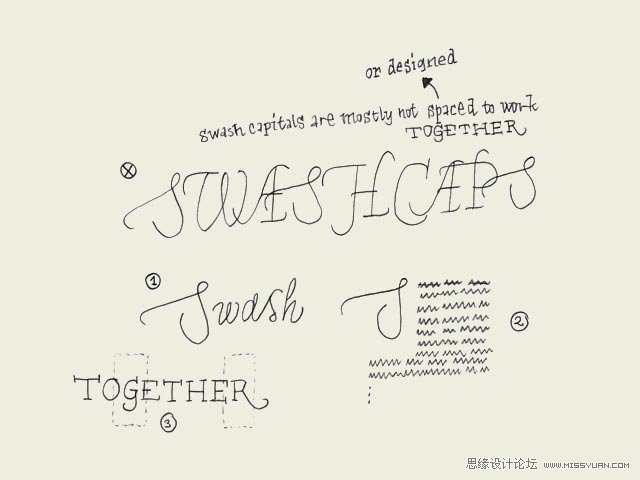 or designed
swash capitals are mostly not spaced to work
TOGETHER
X
SWASHCAPS
1
Swash
S
2
TOGETHER
3
思缘设计论坛 WWW.MISSYUAN.COM